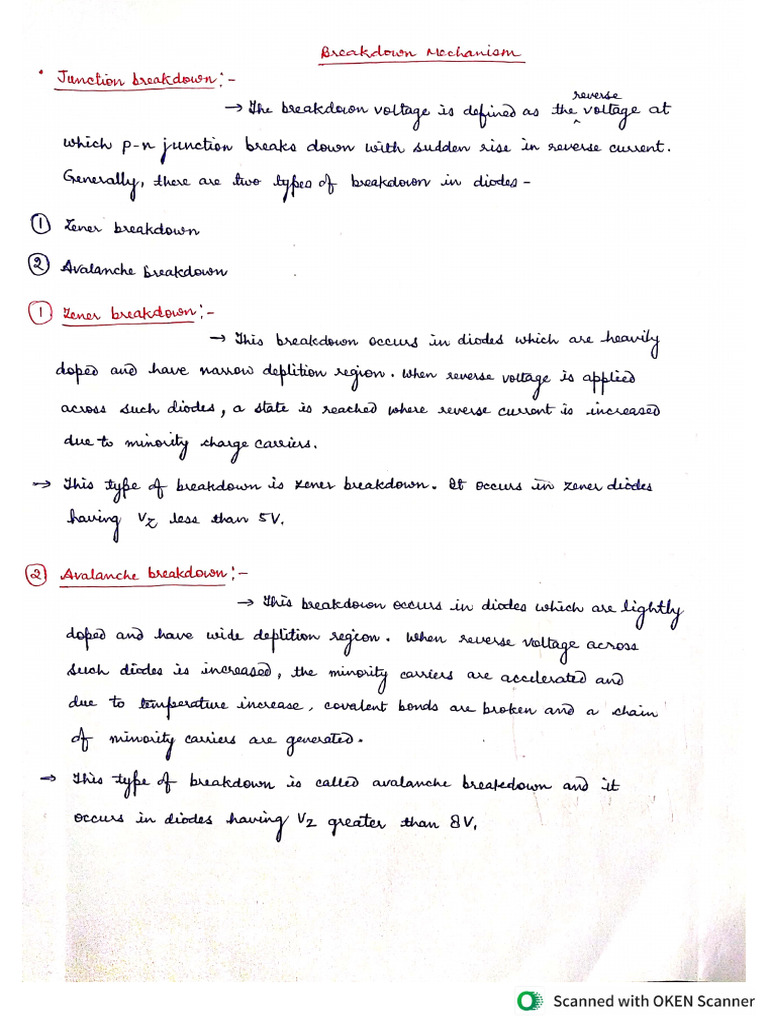 Breakdown Mechanism
• Junction breakdown:-
reverse
→ The breakdown voltage is defined as the ^ voltage at
which p-n junction breaks down with sudden rise in reverse current.
Generally, there are two types of breakdown in diodes -
① Zener breakdown
② Avalanche breakdown
① Zener breakdown:-
→ This breakdown occurs in diodes which are heavily
doped and have narrow deplition region. When reverse voltage is applied
across such diodes, a state is reached where reverse current is increased
due to minority charge carriers.
→ This type of breakdown is zener breakdown. It occurs in zener diodes
having Vz less than 5V.
② Avalanche breakdown:-
→ This breakdown occurs in diodes which are lightly
doped and have wide deplition region. When reverse voltage across
such diodes is increased, the minority carriers are accelerated and
due to temperature increase, covalent bonds are broken and a chain
of minority carriers are generated.
→ This type of breakdown is called avalanche breakedown and it
occurs in diodes having Vz greater than 8V.
Scanned with OKEN Scanner